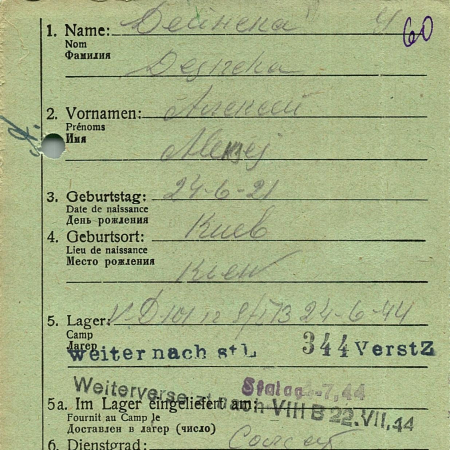 1. Name: Дейнека
Nom
Фамилия
60
2. Vornamen: Алексей
Prénoms
Имя
Alexej
3. Geburtstag: 24-6-21
Date de naissance
День рождения
4. Geburtsort: Киев
Lieu de naissance
Место рождения
Kiew
5. Lager: 24-6-44
Camp
Лагерь
weiter nach stL 344 VerstZ
Stalag 7,44
Weiterverse nach VIII B 22.VII,44
5a. Im Lager eingeliefert am:
Fournit au Camp le
Доставлен в лагерь (число)
6. Dienstgrad: Солдат